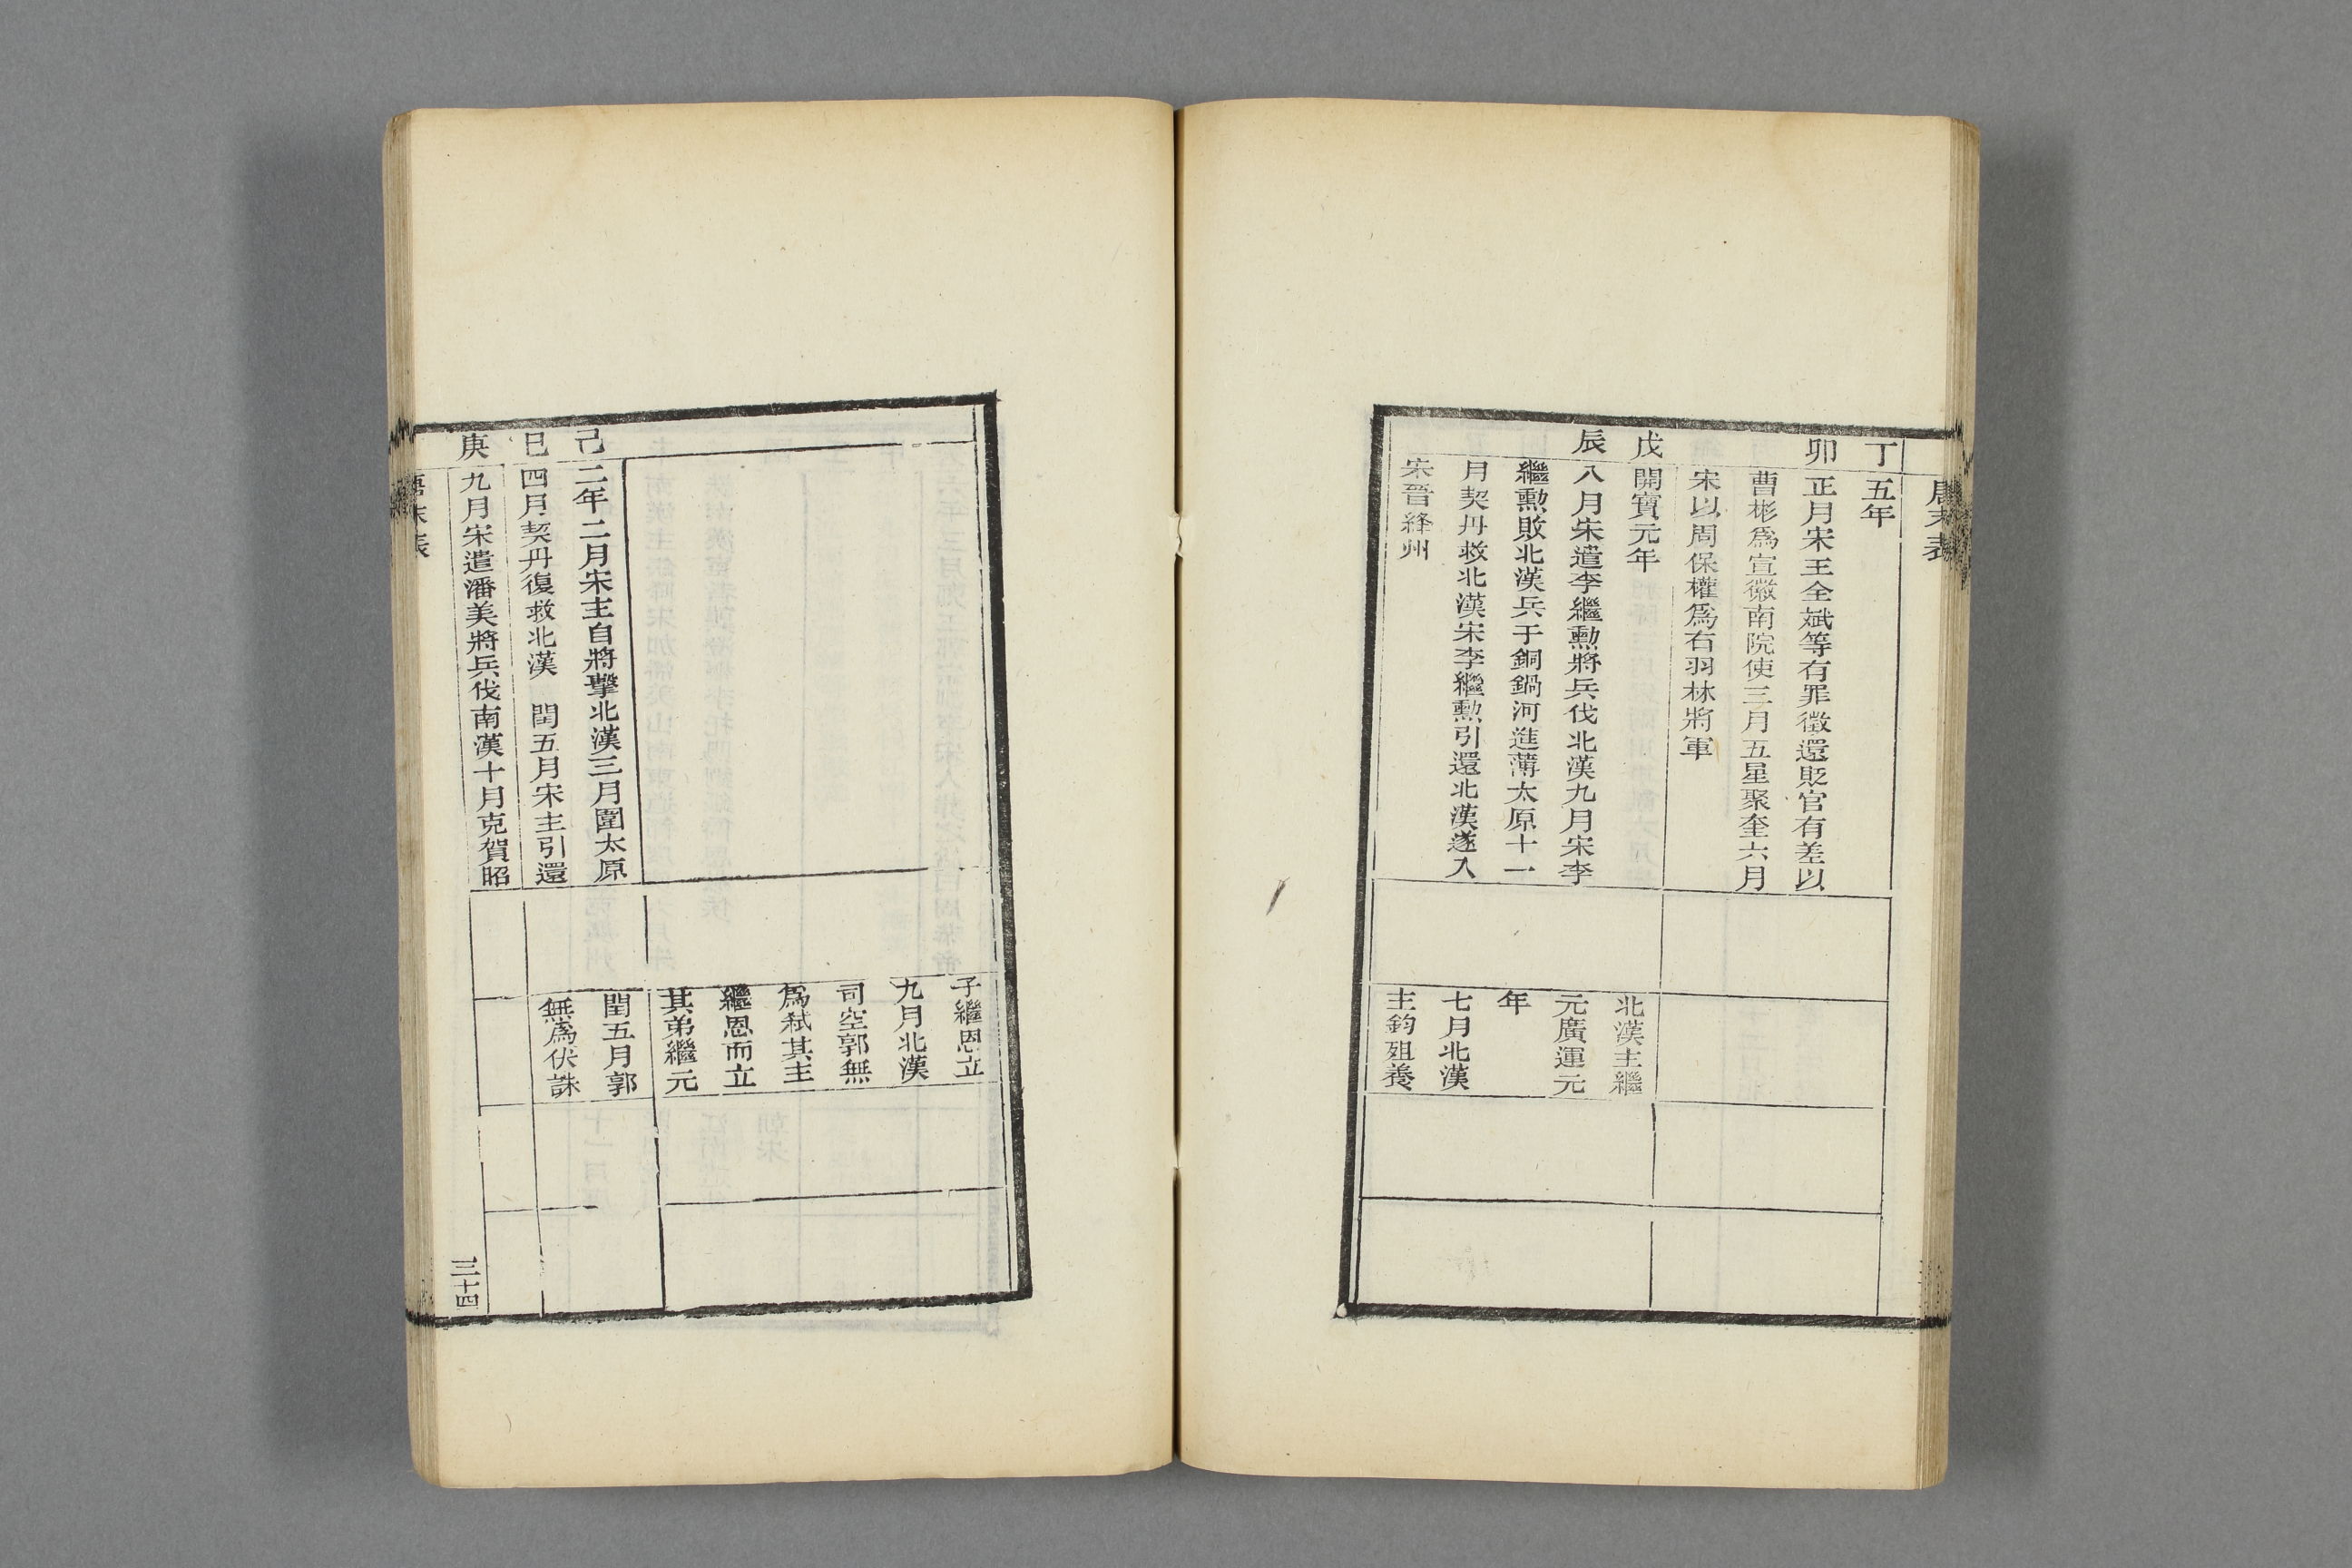 唐末表
丁卯
五年
正月宋王全斌等有罪徵還貶官有差以
曹彬爲宣徽南院使三月五星聚奎六月
宋以周保權爲右羽林將軍
戊辰
開寶元年
八月宋遣李繼勲將兵伐北漢九月宋李
繼勲敗北漢兵于銅鍋河進薄太原十一
月契丹救北漢宋李繼勲引還北漢遂入
宋晉絳州
北漢主繼
元廣運元
年
七月北漢
主鈞殂養
子繼恩立
九月北漢
司空郭無
爲弑其主
繼恩而立
其弟繼元
己巳
二年二月宋主自將擊北漢三月圍太原
四月契丹復救北漢 閏五月宋主引還
閏五月郭
無爲伏誅
庚
九月宋遣潘美將兵伐南漢十月克賀昭
唐末表
三十四